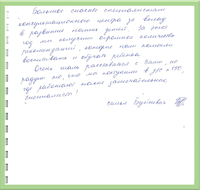 Большое спасибо специалистам
консультационного центра за вклад
в развитие наших детей. За этот
год мы получили огромное количество
рекомендаций, которые нам помогли
воспитывать и обучать ребенка.
Очень жаль расставаться с Вами, но
радует то, что мы поступаем в д/с
где работают такие замечательные
специалисты!
Семья